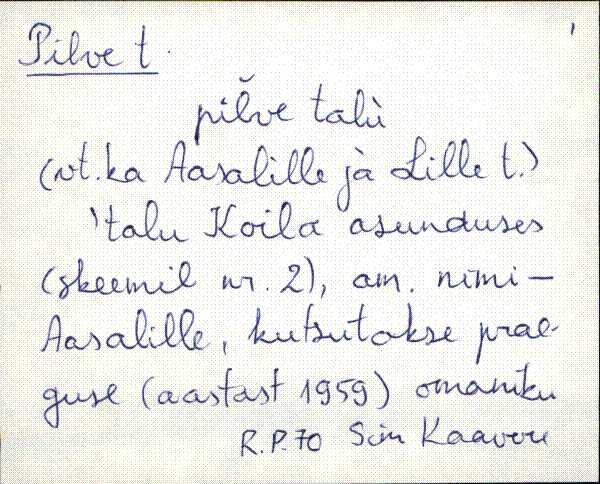 Pilve t.
pil̆ve talù
(vt. ka Aasalille jà Lille t.)
'talu Koila asunduses
(skeemil nr. 2), am. nimi-
Aasalille, kutsutakse prae-
guse (aastast 1959) omaniku
R.P.70 Siim Kaavere